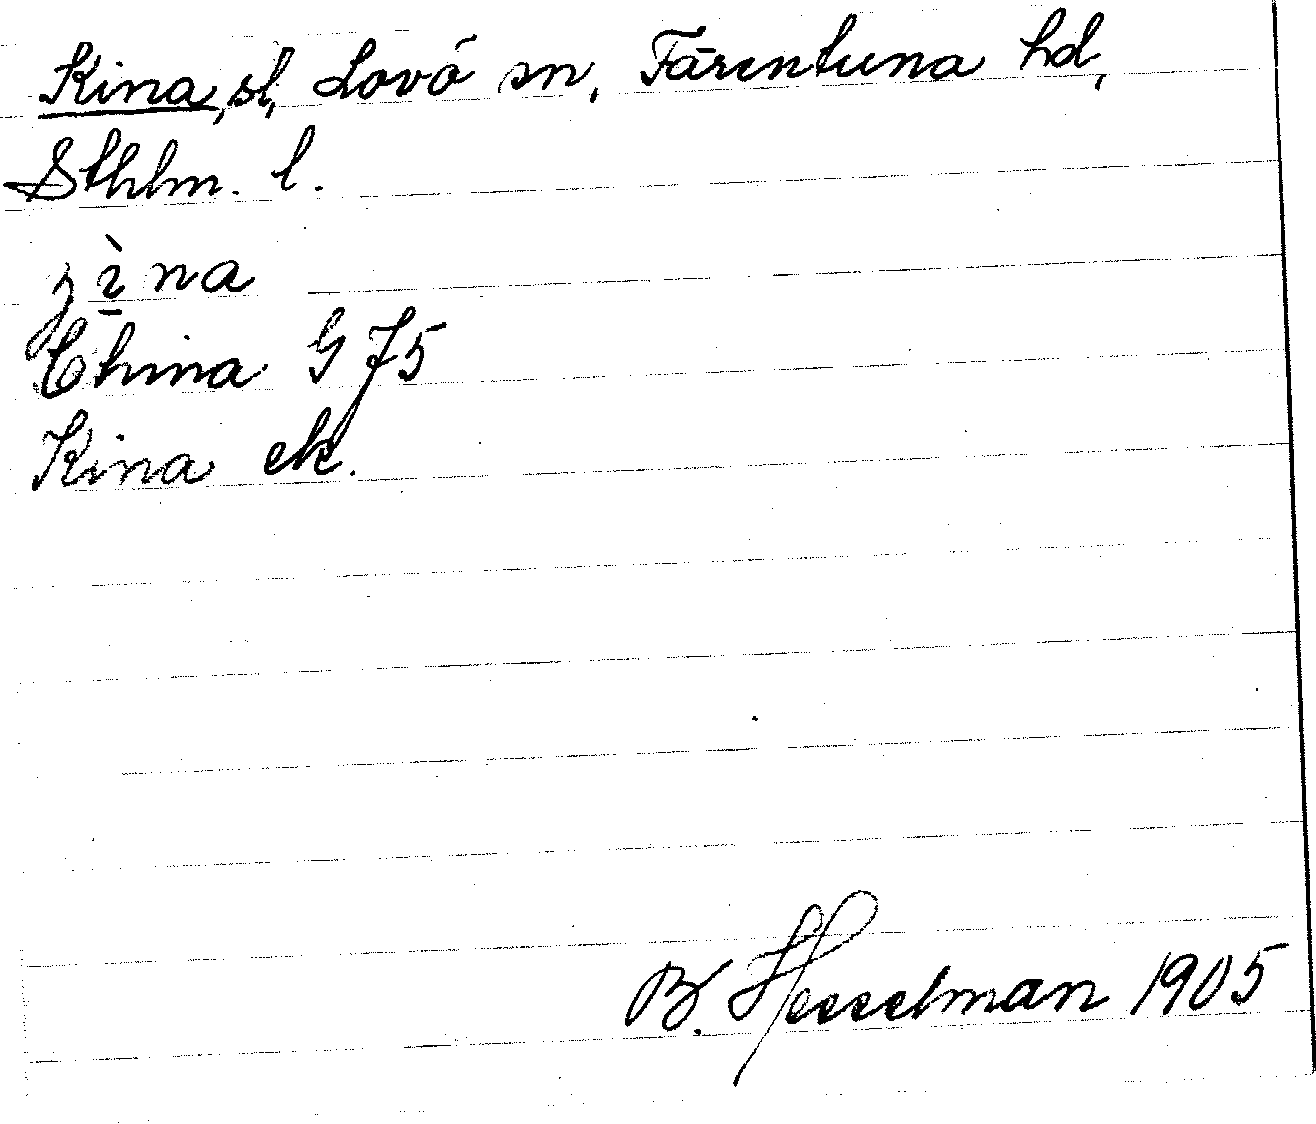 Kina, sl, Lovö sn, Färentuna hd,
Sthlm. l.
China G 75
Kina ek.
B. Hesselman 1905